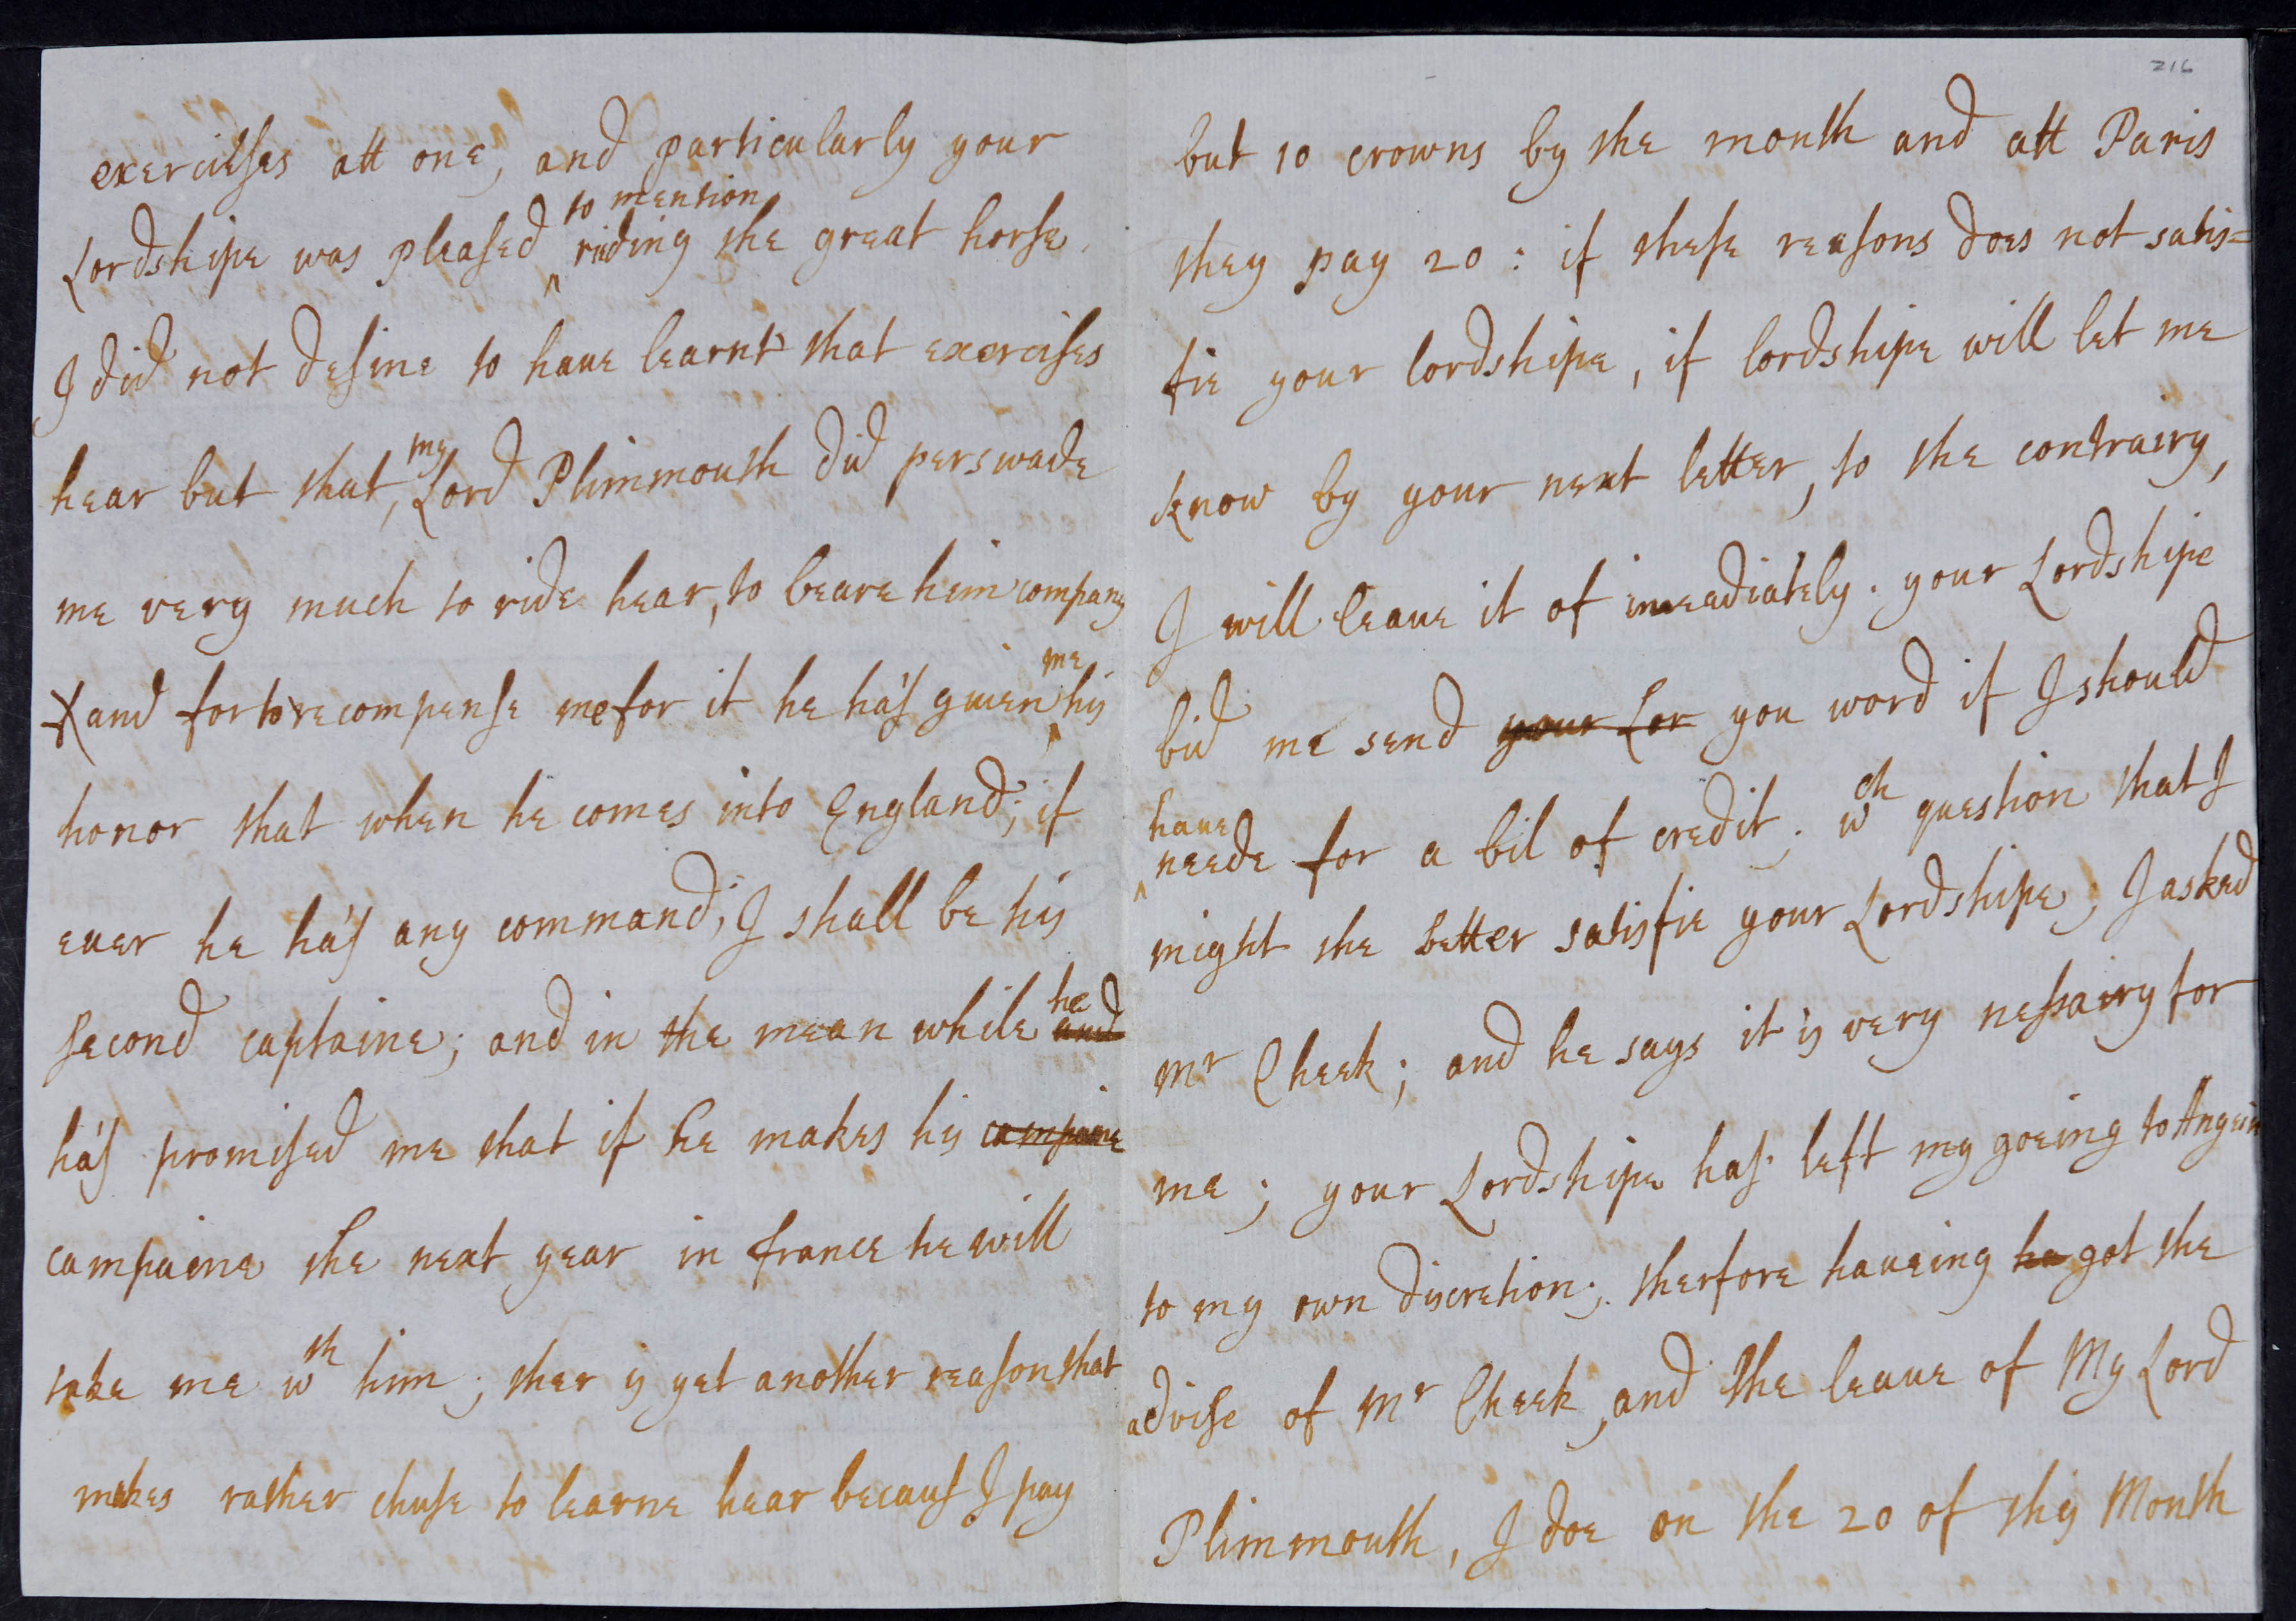 exercieses att one, and particularly your
to mention
Lordshipe was pleased ^ riding the great horse.
I did not desine to haue learnt that exercises
my
hear but that, Lord Plimmouth did perswade
me very much to ride hear, to beare him company
and for to recompense me for it he ha's giuen ^ his
me
honor that when he comes into England; if
euer he ha's any command, I shall be his
second captaine; and in the mean while he and
ha's promised me that if he makes his campaine
campaine the next year in france he will
take me wth him; ther is yet another reason that
makes rather chuse to learne hear becaus I pay
216
but 10 crowns by the month and att Paris
they pay 20: if these reasons does not satis=
fie your lordshipe, if lordshipe will let me
know by your next letter, to the contrairy,
I will leaue it of imeadiately. your Lordshipe
bid me send your Lor you word if I should
haue
^ neede for a bil of credit; wch question that I
might the better satisfie your Lordshipe, I asked
Mr Cheek; and he says it is very nessairy for
me; your Lordshipe has left my goeing to
to my own discretion; therfore haueing ha got the
advise of Mr Cheek, and the leaue of My Lord
Plimmouth, I doe on the 20 of this Month